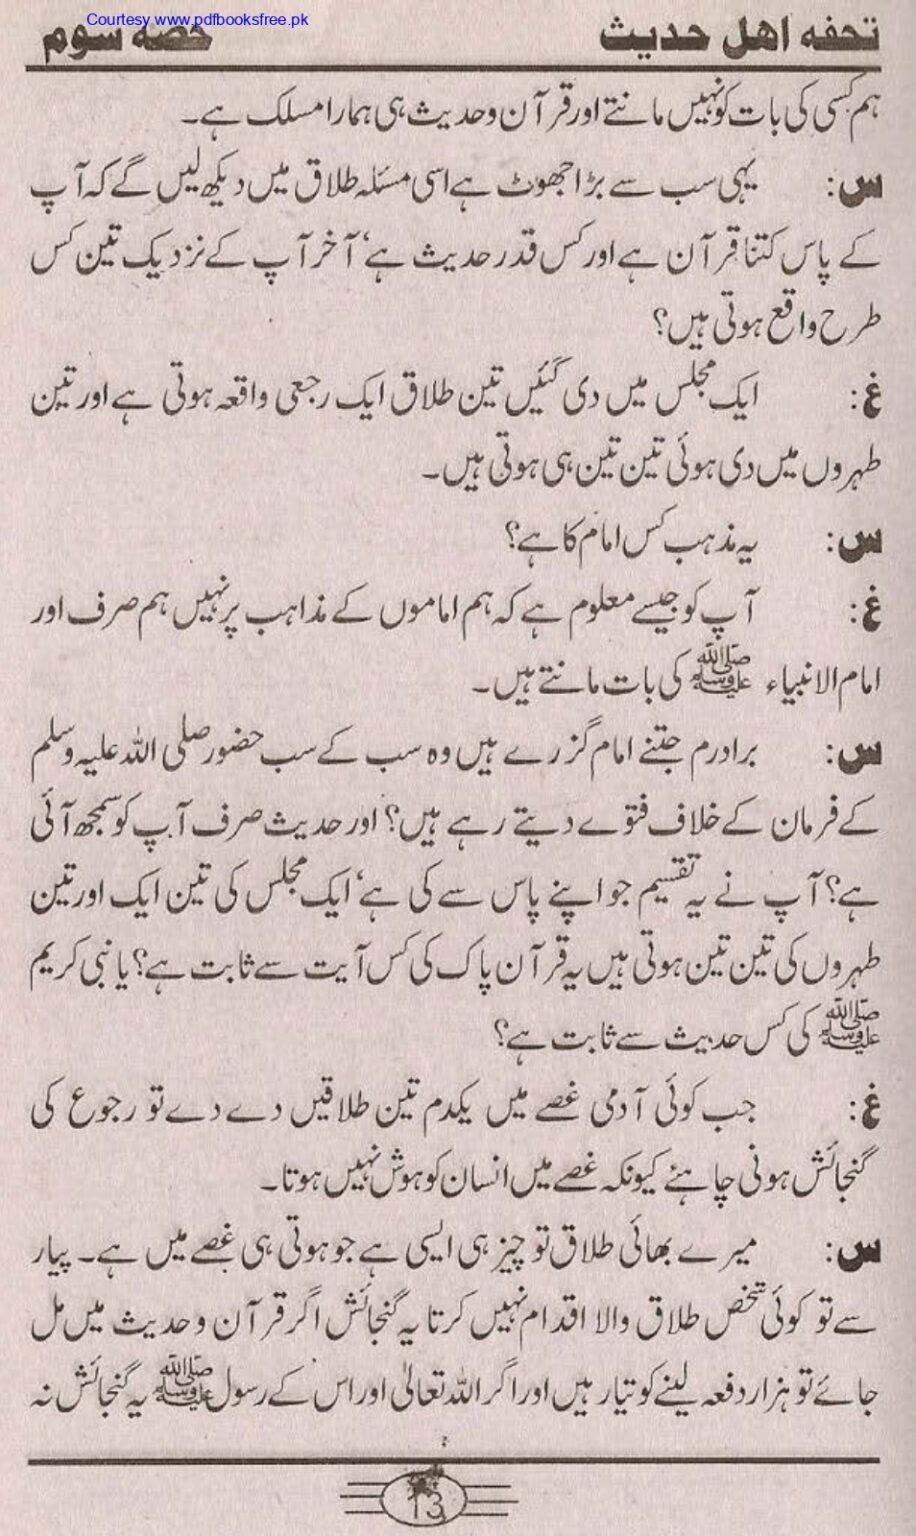 Courtesy www.pdfbooksfree.pk
تحفه اهل حدیث حصه سوم
ہم کسی کی بات کو نہیں مانتے اور قرآن و حدیث ہی ہمارا مسلک ہے۔
س: یہی سب سے بڑا جھوٹ ہے اسی مسئلہ طلاق میں دیکھ لیں گے کہ آپ
کے پاس کتنا قرآن ہے اور کس قدر حدیث ہے‘ آخر آپ کے نزدیک تین کس
طرح واقع ہوتی ہیں؟
غ: ایک مجلس میں دی گئیں تین طلاق ایک رجعی واقعہ ہوتی ہے اور تین
طہروں میں دی ہوئی تین تین ہی ہوتی ہیں۔
س: یہ مذہب کس امام کا ہے؟
غ: آپ کو جیسے معلوم ہے کہ ہم اماموں کے مذاہب پر نہیں ہم صرف اور
امام الانبیاء ﷺ کی بات مانتے ہیں۔
س: برادرم جتنے امام گزرے ہیں وہ سب کے سب حضور صلی اللہ علیہ وسلم
کے فرمان کے خلاف فتوے دیتے رہے ہیں؟ اور حدیث صرف آپ کو سمجھ آئی
ہے؟ آپ نے یہ تقسیم جو اپنے پاس سے کی ہے‘ ایک مجلس کی تین ایک اور تین
طہروں کی تین تین ہوتی ہیں یہ قرآن پاک کی کس آیت سے ثابت ہے؟ یا نبی کریم
ﷺ کی کس حدیث سے ثابت ہے؟
غ: جب کوئی آدمی غصے میں یکدم تین طلاقیں دے دے تو رجوع کی
گنجائش ہونی چاہئے کیونکہ غصے میں انسان کو ہوش نہیں ہوتا۔
س: میرے بھائی طلاق تو چیز ہی ایسی ہے جو ہوتی ہی غصے میں ہے۔ پیار
سے تو کوئی شخص طلاق والا اقدام نہیں کرتا یہ گنجائش اگر قرآن و حدیث میں مل
جائے تو ہزار دفعہ لینے کو تیار ہیں اور اگر اللہ تعالیٰ اور اس کے رسول ﷺ یہ گنجائش نہ
13